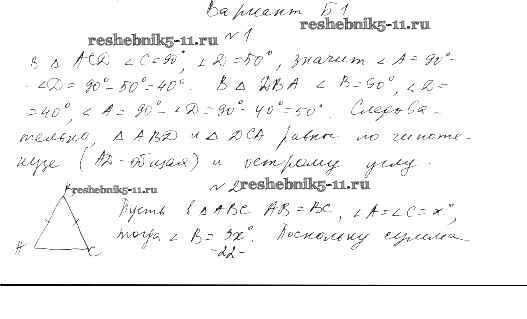 Вариант Б1
reshebnik5-11.ru
reshebnik5-11.ru
№1
В △ ACD ∠C=90°, ∠D=50°, значит ∠A=90°-
-∠D=90°-50°=40°. В △ DBA ∠B=90°, ∠D=
=40°, ∠A=90°-∠D=90°-40°=50°. Следова-
тельно, △ ABD и △ DCA равны по гипоте-
нузе (AD-общая) и острому углу.
№2
reshebnik5-11.ru
reshebnik5-11.ru
Пусть в △ABC AB=BC, ∠A=∠C=x°,
A C
тогда ∠B=3x°. Поскольку сумма
-22-